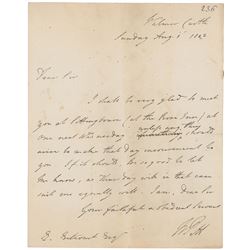 236
Walmer Castle
Sunday Aug. 1
Dear Sir
I shall be very glad to meet
you at Sittingbourn (at the Rose Inn) at
One next Wednesday unless any thing should
arise to make that day inconvenient to
you. If it should be so good to let
me know, as Thursday will in that case
suit me equally well. I am, Dear Sir
Your faithful & Obedient Servant
W. Pitt
Esq